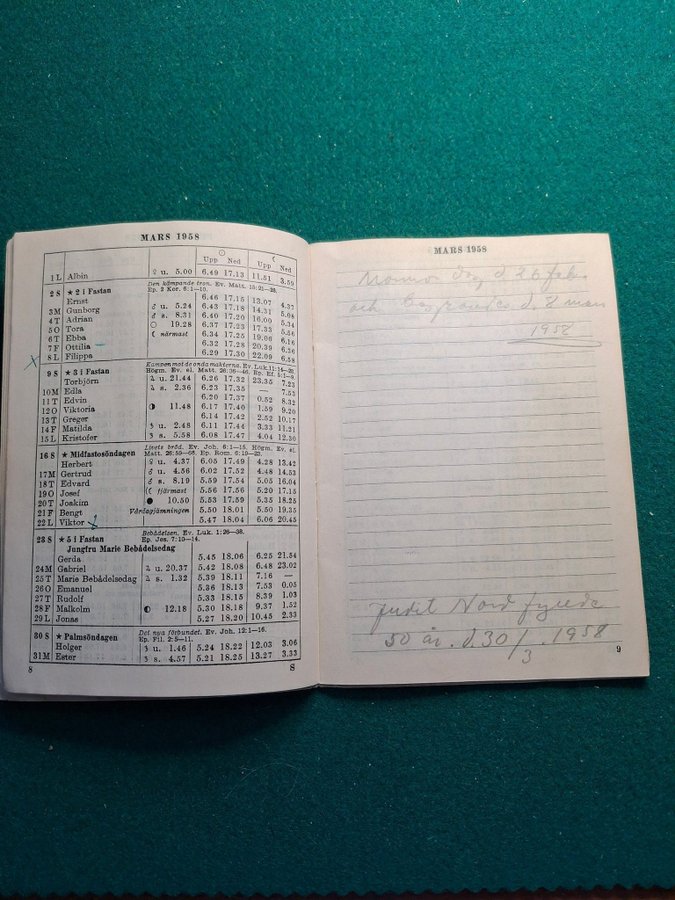 MARS 1958
Upp Ned Upp Ned
1 L Albin ♀ u. 5.00 6.49 17.13 11.51 3.59
2 S ★ 2 i Fastan Den kämpande tron. Ev. Matt. 15:21—28. Ep. 2 Kor. 6:1—10.
Ernst 6.46 17.15 13.07 4.37
3 M Gunborg ♂ u. 5.24 6.43 17.18 14.31 5.08
4 T Adrian ♂ s. 8.31 6.40 17.20 16.00 5.34
5 O Tora ○ 19.28 6.37 17.23 17.33 5.54
6 T Ebba ☾ närmast 6.34 17.25 19.06 6.16
7 F Ottilia 6.32 17.28 20.39 6.36
x 8 L Filippa 6.29 17.30 22.09 6.58
9 S ★ 3 i Fastan Kampen mot de onda makterna. Ev. Luk. 11:14—28. Högm. Ev. el. Matt. 26:36—46. Ep. Ef. 5:1—9.
Torbjörn ♃ u. 21.44 6.26 17.32 23.35 7.23
10 M Edla ♃ s. 2.36 6.23 17.35 — 7.53
11 T Edvin 6.20 17.37 0.52 8.32
12 O Viktoria ◑ 11.48 6.17 17.40 1.59 9.20
13 T Greger 6.14 17.42 2.52 10.17
14 F Matilda ♄ u. 2.48 6.11 17.44 3.33 11.21
15 L Kristofer ♄ s. 5.58 6.08 17.47 4.04 12.30
16 S ★ Midfastosöndagen Livets bröd. Ev. Joh. 6:1—15. Högm. Ev. el. Matt. 26:59—68. Ep. Rom. 6:19—23.
Herbert ♀ u. 4.37 6.05 17.49 4.28 13.42
17 M Gertrud ♀ u. 4.56 6.02 17.52 4.48 14.53
18 T Edvard ♂ s. 8.19 5.59 17.54 5.05 16.04
19 O Josef ☾ fjärmast 5.56 17.56 5.20 17.15
20 T Joakim ● 10.50 5.53 17.59 5.35 18.25
21 F Bengt Vårdagjämningen 5.50 18.01 5.50 19.35
22 L Viktor 5.47 18.04 6.06 20.45
23 S ★ 5 i Fastan Bebådelsen. Ev. Luk. 1:26—38.
Jungfru Marie Bebådelsedag Ep. Jes. 7:10—14.
Gerda 5.45 18.06 6.25 21.54
24 M Gabriel ♃ u. 20.37 5.42 18.08 6.48 23.02
25 T Marie Bebådelsedag ♃ s. 1.32 5.39 18.11 7.16 —
26 O Emanuel 5.36 18.13 7.53 0.05
27 T Rudolf 5.33 18.15 8.39 1.03
28 F Malkolm ◐ 12.18 5.30 18.18 9.37 1.52
29 L Jonas 5.27 18.20 10.45 2.33
30 S ★ Palmsöndagen Det nya förbundet. Ev. Joh. 12:1—16. Ep. Fil. 2:5—11.
Holger ♄ u. 1.46 5.24 18.22 12.03 3.06
31 M Ester ♄ s. 4.57 5.21 18.25 13.27 3.33
8 8
MARS 1958
dog d. 26 feb.
och d. 8 mars
1958
Judit Nord fyllde
50 år. d. 30/3. 1958
9